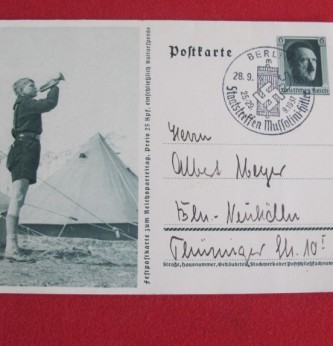 Postkarte
6
Deutsches Reich
BERLIN
28. 9. 37
Staatstreffen Mussolini-Hitler
25.-29. 9. 1937
Herrn
Albert Meyer
Bln-Neukölln
Thüringer Str. 10
Straße, Hausnummer, Gebäudeteil, Stockwerk oder Postschließfachnummer
Festpostkarte zum Reichsparteitag, Preis 25 Rpf. einschließlich Kulturspende